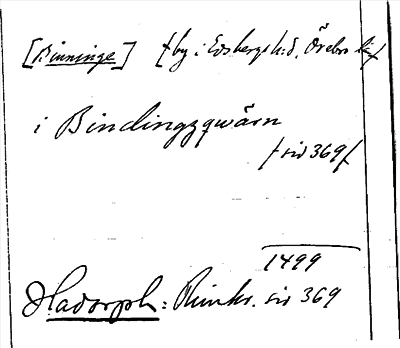 [Binninge] /by i Edsbergs h:d, Örebro län/
i Bindingzqwärn
/sid 369/
1499
Hadorph: Rimkr. sid 369